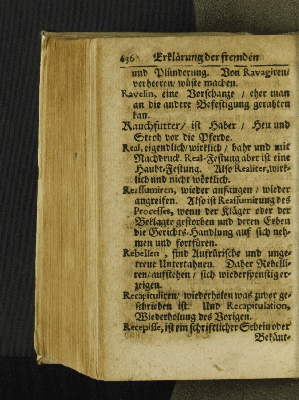 436 Erklärung der fremden
und Plünderung. Von Ravagiren/
verheeren/ wüste machen.
Ravelin, eine Vorschantz / eher man
an die andere Befestigung gerahten
kan.
Rauchfutter/ ist Haber / Heu und
Stroh vor die Pferde.
Real, eigendlich/ wirklich / bahr und mit
Nachdruck. Real-Festung aber ist eine
Haubt-Festung. Also Realiter, wirk-
lich und nicht wörtlich.
Reassumiren, wieder anfangen / wieder
angreifen. Also ist Reassumirung des
Processes, wenn der Kläger oder der
Beklagte gestorben und deren Erben
die Gerichts-Handlung auf sich neh-
men und fortfüren.
Rebellen , sind Aufrürische und unge-
treue Untertahnen. Daher Rebelli-
ren/ aufstehen / sich wiederspenstig er-
zeigen.
Recapituliren/ wiederholen was zuvor ge-
schrieben ist. Und Recapitulation,
Wiederholung des Vorigen.
Recepisse, ist ein schriftlicher Schein oder
Bekänt-